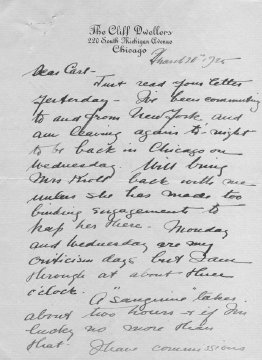 The Cliff Dwellers
220 South Michigan Avenue
Chicago
March 1925
Dear Carl -
Just read your letter
yesterday - I've been commuting
to and from New York and
am leaving again to-night
to be back in Chicago on
Wednesday. Will bring
Mrs back with me
unless she has made too
binding engagements to
keep her there. Monday
and Wednesday are my
criticism days but I am
through at about three
o'clock.
A "sanguine" takes
about two hours & if I'm
lucky no more than
that. I have commissions